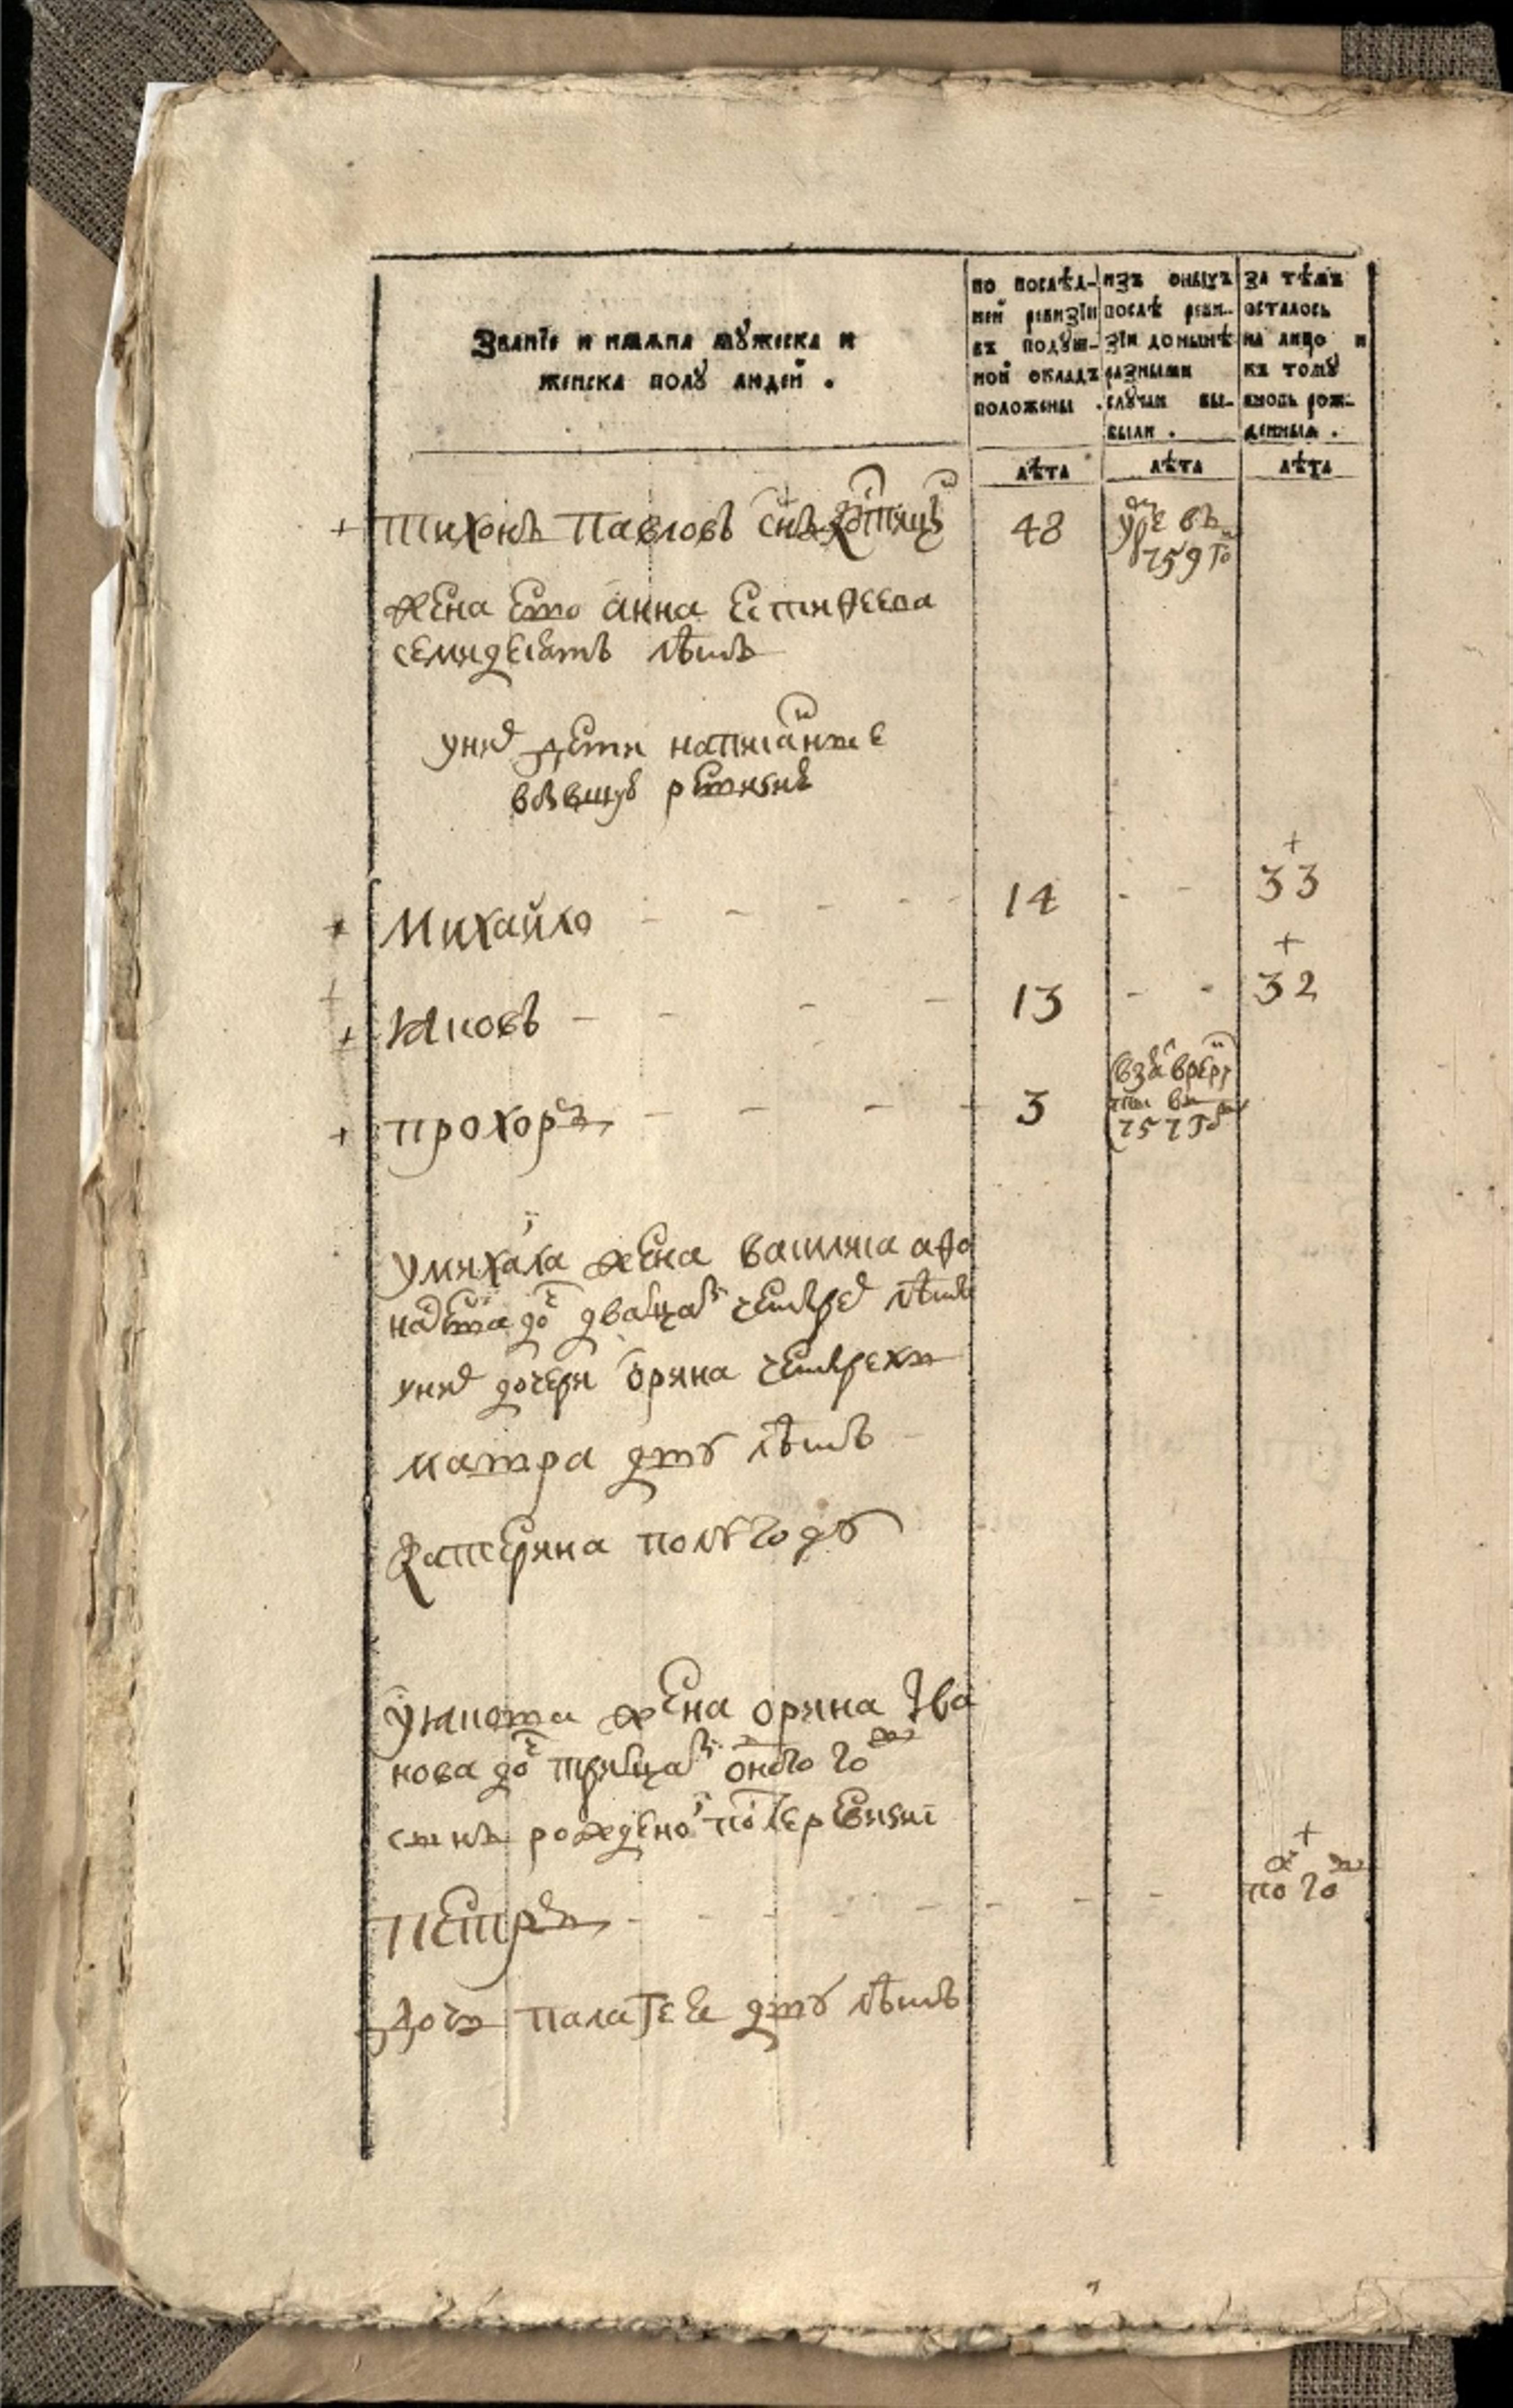 Званїе и имяна мꙋжеска и
женска полꙋ людей .
по послѣд-
ней ревизїи
въ подꙋш-
ной окладъ
положены .
изъ оныхъ
послѣ реви-
зїи до нынѣ
разными
слꙋчаи вы-
были .
за тѣмъ
осталось
на лицо и
къ томꙋ
вновь рож-
денныя .
лѣта
лѣта
лѣта
+ Тихонъ Павловъ снъ
48
умре въ
759 го
жена ево анна
семидесятъ лѣтъ
уних дети написанные
въбывшую ревизию
+ Михайло - - - - 14 - - + 33
+ Яковъ - - - - 13 - - + 32
+ прохоръ - - - - 3
взятъ врекру
ты въ
757 году
умихаила жена василиса афо
насева доч двацати четырех лѣтъ
уних дочери орина четырехъ
матра двух лѣтъ
катерина полугоду
уякова жена орина Ива
нова доч трицати одного году
сынъ рожденой после ревизиї
петръ - - - - - - - + пол году
дочь палагея двух лѣтъ